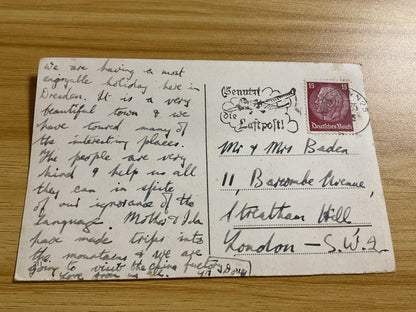 We are having a most
enjoyable holiday here in
Dresden. It is a very
beautiful town & we
have toured many of
the interesting places.
The people are very
kind & help us all
they can in spite
of our ignorance of the
language. Mother & Ida
have made trips into
the mountains & we are
going to visit the china factory
Love from us all.
Benutzt
die
Luftpost!
15 15
Deutsches Reich
Mr & Mrs Baden
11, Barcombe Avenue,
Streatham Hill
London - S.W.2